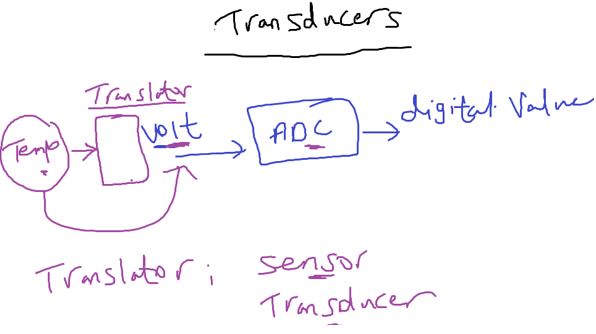 Transducers
Translator
Temp
Volt
ADC
digital Value
Translator; sensor
Transducer